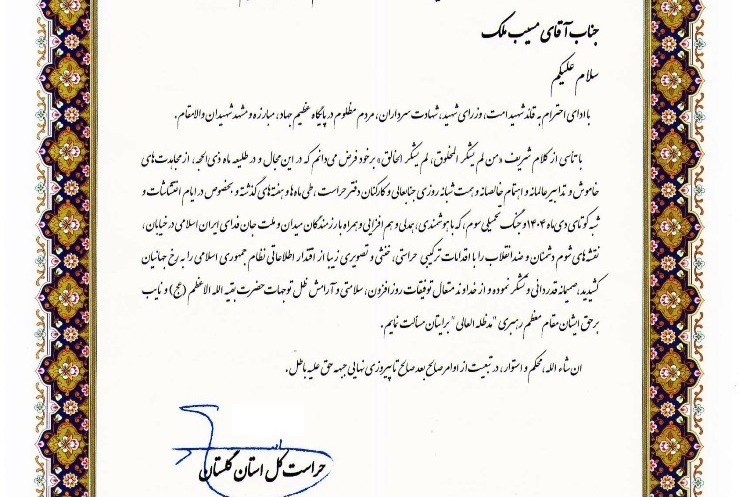 جناب آقای مسیب ملک
سلام علیکم
با ادای احترام به قائد شهید امت، وزرای شهید، شهادت سرداران، مردم مظلوم در پایگاه عظیم جهاد، مبارزه و مشهد شهیدان والامقام.
با تأسی از کلام شریف «من لم یشکر المخلوق، لم یشکر الخالق» بر خود فرض می‌دانم که در این مجال و در طلیعه ماه ذی الحجه، از مجاهدت‌های
خاموش و تدابیر عالمانه و اهتمام خالصانه و همت شبانه روزی جنابعالی و کارکنان دفتر حراست، طی ماه‌ها و هفته‌های گذشته و بخصوص در ایام اغتشاشات و
شبه کودتای دی ماه ۱۴۰۴ و جنگ تحمیلی سوم، که با هوشمندی، همدلی و هم افزایی و همراه با رزمندگان میدان و ملت جان فدای ایران اسلامی در خیابان،
نقشه‌های شوم دشمنان و ضد انقلاب را با اقدامات ترکیبی حراستی، خنثی و تصویری زیبا از اقتدار اطلاعاتی نظام جمهوری اسلامی را به رخ جهانیان
کشیدید، صمیمانه قدردانی و تشکر نموده و از خداوند متعال توفیقات روزافزون، سلامتی و آرامش ظل توجهات حضرت بقیه الله الاعظم (عج) و نایب
بر حق ایشان مقام معظم رهبری "مدظله العالی" برایتان مسألت نمایم.
ان شاء الله، محکم و استوار، در تبعیت از اوامر صالح بعد صالح تا پیروزی نهایی جبهه حق علیه باطل.
حراست کل استان گلستان